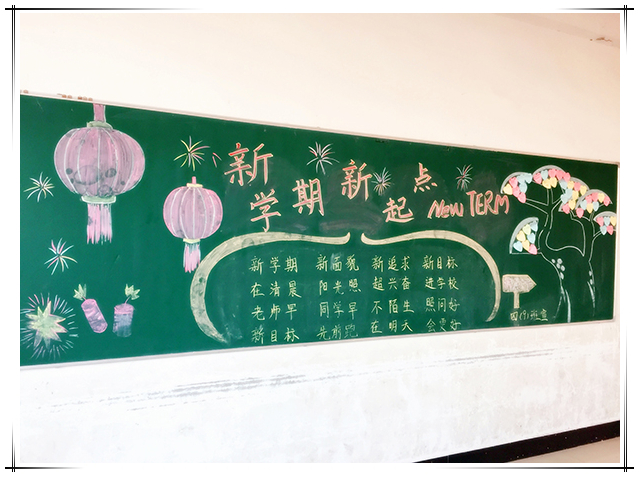 新学期 新起点 NEW TERM
新学期 新面貌 新追求 新目标
在清晨 阳光照 超兴奋 进学校
老师早 同学早 不陌生 照问好
新目标 先前跑 在明天 会更好
四(1)班宣